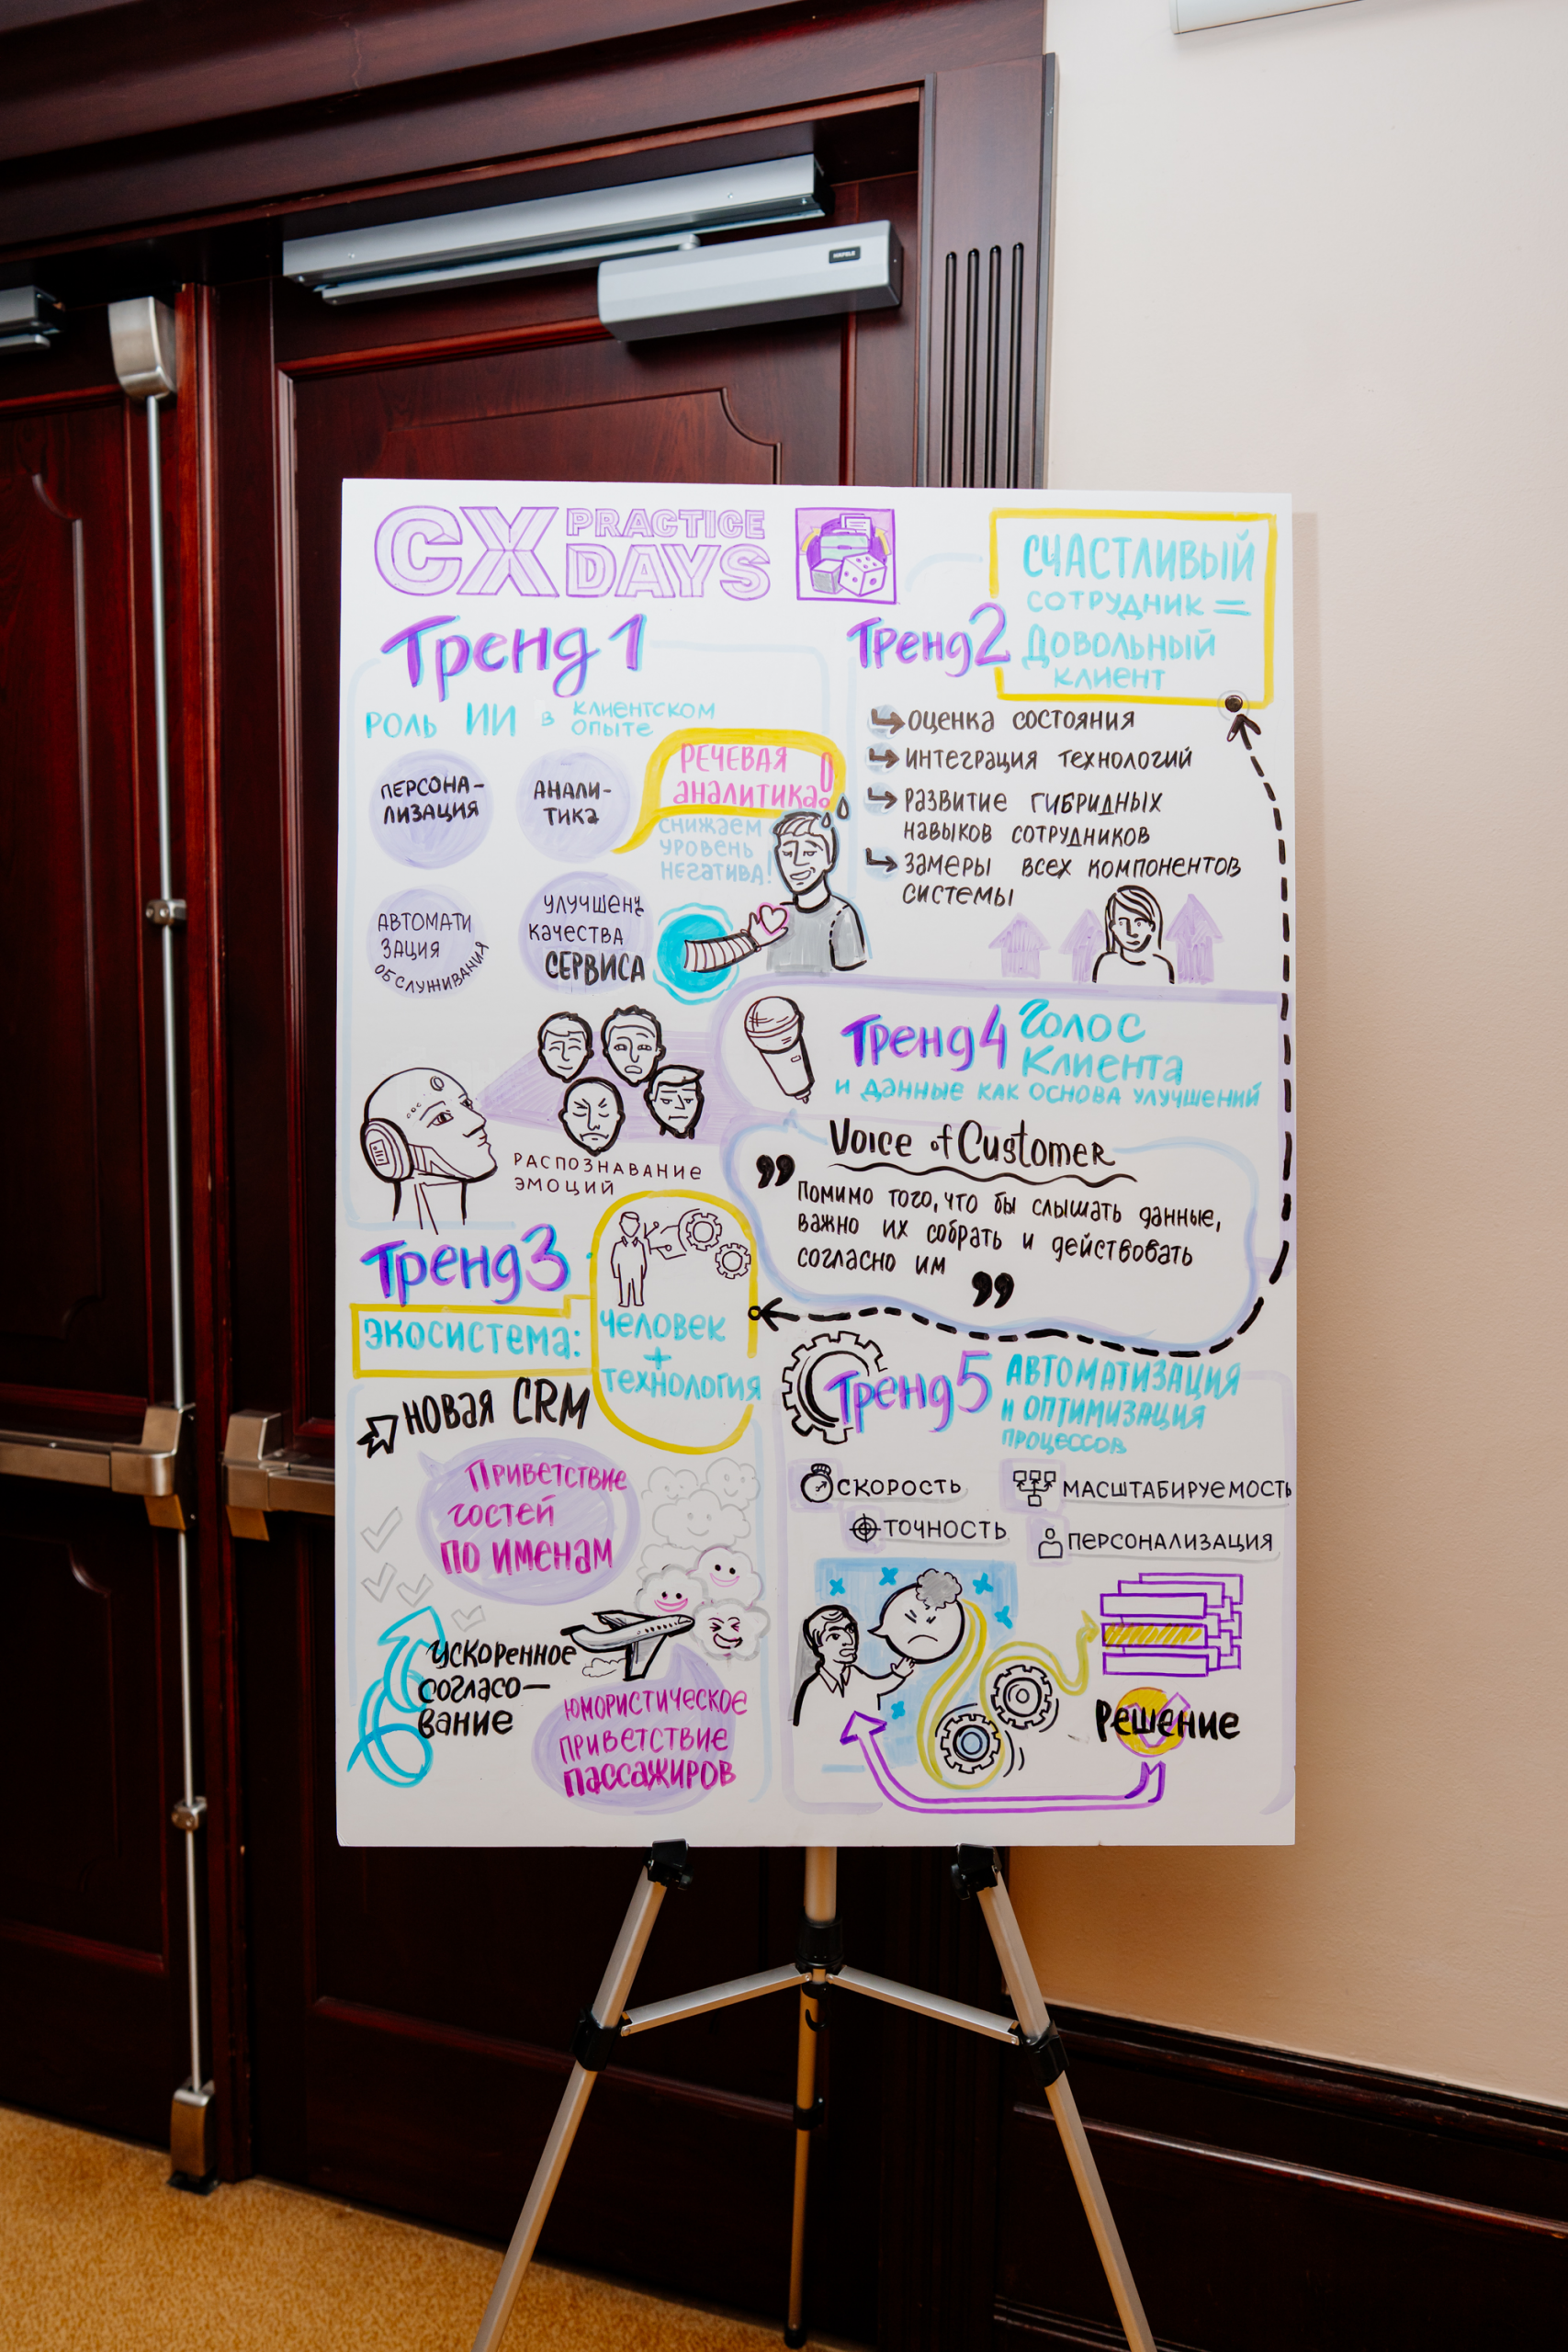 HAFELE
CX PRACTICE
DAYS
Тренд 1
РОЛЬ ИИ В КЛИЕНТСКОМ
ОПЫТЕ
ПЕРСОНА-
ЛИЗАЦИЯ
АНАЛИ-
ТИКА
РЕЧЕВАЯ
АНАЛИТИКА!
СНИЖАЕМ
УРОВЕНЬ
НЕГАТИВА!
АВТОМАТИ
ЗАЦИЯ
ОБСЛУЖИВАНИЯ
УЛУЧШЕНЕ
КАЧЕСТВА
СЕРВИСА
РАСПОЗНАВАНИЕ
ЭМОЦИЙ
Тренд 2
СЧАСТЛИВЫЙ
СОТРУДНИК =
ДОВОЛЬНЫЙ
КЛИЕНТ
ОЦЕНКА СОСТОЯНИЯ
ИНТЕГРАЦИЯ ТЕХНОЛОГИЙ
РАЗВИТИЕ ГИБРИДНЫХ
НАВЫКОВ СОТРУДНИКОВ
ЗАМЕРЫ ВСЕХ КОМПОНЕНТОВ
СИСТЕМЫ
Тренд 3
ЭКОСИСТЕМА:
ЧЕЛОВЕК
+
ТЕХНОЛОГИЯ
НОВАЯ CRM
ПРИВЕТСТВИЕ
ГОСТЕЙ
ПО ИМЕНАМ
УСКОРЕННОЕ
СОГЛАСО-
ВАНИЕ
ЮМОРИСТИЧЕСКОЕ
ПРИВЕТСТВИЕ
ПАССАЖИРОВ
Тренд 4 Голос
Клиента
И ДАННЫЕ КАК ОСНОВА УЛУЧШЕНИЙ
Voice of Customer
" Помимо того, что бы слышать данные,
важно их собрать и действовать
согласно им "
Тренд 5 АВТОМАТИЗАЦИЯ
И ОПТИМИЗАЦИЯ
ПРОЦЕССОВ
СКОРОСТЬ
МАСШТАБИРУЕМОСТЬ
ТОЧНОСТЬ
ПЕРСОНАЛИЗАЦИЯ
РЕШЕНИЕ